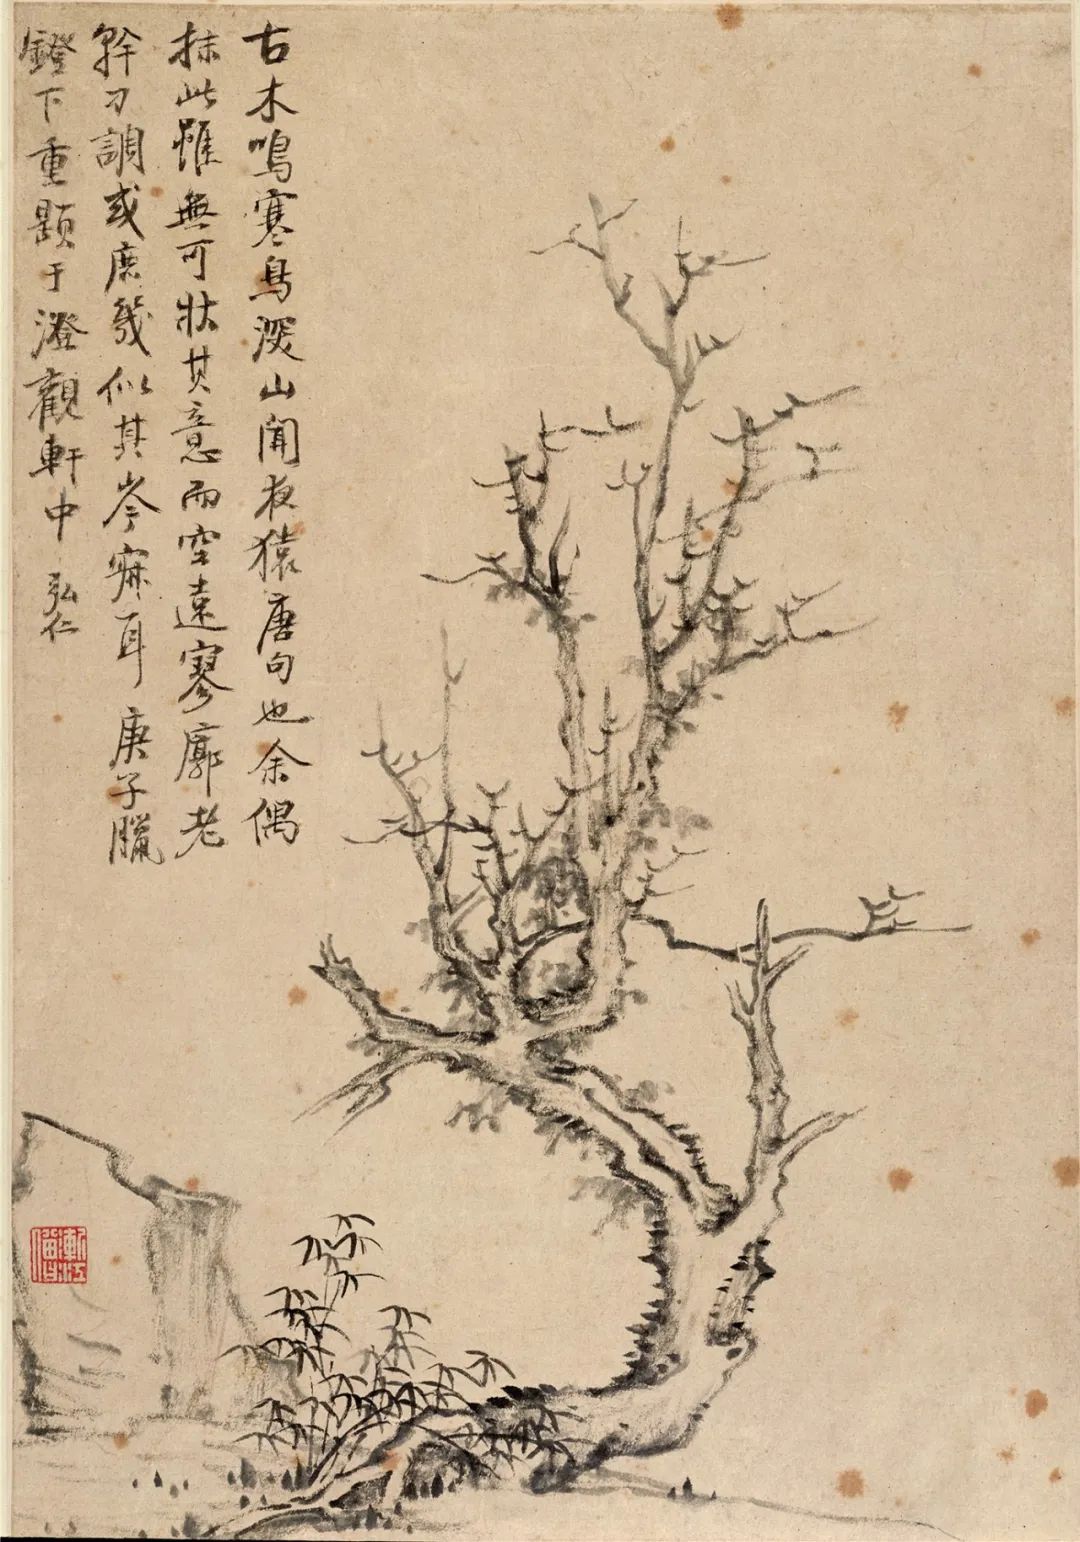 古木鳴寒鳥深山聞夜猿唐句也余偶
抹此雖無可狀其意而空遠寥廓老
幹刁調或庶幾似其岑寂耳庚子臘
鐙下重題于澄觀軒中弘仁
漸江僧